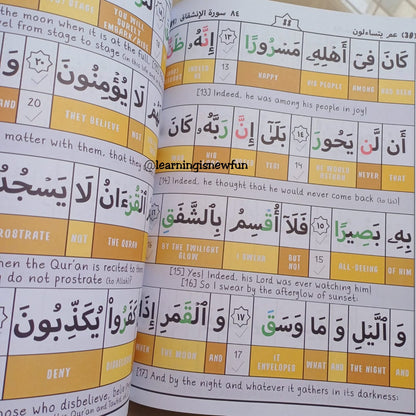 (30) عم يتساءلون
سورة الإنشقاق ٨٤
كَانَ فِىٓ أَهْلِهِۦ مَسْرُورًا ١٣ إِنَّهُۥ
13 HAPPY HIS PEOPLE AMONG
[13] Indeed, he was among his people in joy!
أَن لَّن يَحُورَ ١٤ بَلَىٰٓ إِنَّ رَبَّهُۥ كَانَ
YES! 14 HE WOULD RETURN NEVER THAT
[14] Indeed, he thought that he would never come back (to Us)
بِهِۦ بَصِيرًا ١٥ فَلَآ أُقْسِمُ بِٱلشَّفَقِ
BY THE TWILIGHT GLOW I SWEAR BUT NO! 15 ALL-SEEING OF HIM
[15] Yes! Indeed, his Lord was ever watching him!
[16] So I swear by the afterglow of sunset;
وَ ٱلَّيْلِ وَ مَا وَسَقَ ١٧ وَ ٱلْقَمَرِ إِذَا
WHEN THE MOON AND 17 IT ENVELOPED WHAT AND THE NIGHT AND
[17] And by the night and whatever it gathers in its darkness;
@learningisnewfun
STAGE YOU WILL SURELY
the moon when it is at the full
from stage to stage
٢٠ لَا يُؤْمِنُونَ وَ
AND 20 THEY BELIEVE NOT
matter with them, that they
ٱلْقُرْءَانُ لَا يَسْجُدُ
PROSTRATE NOT THE QURAN
when the Qur'an is recited to them
do not prostrate (to Allah)?
كَفَرُوا۟ يُكَذِّبُونَ وَ
DENY
those who disbelieve,